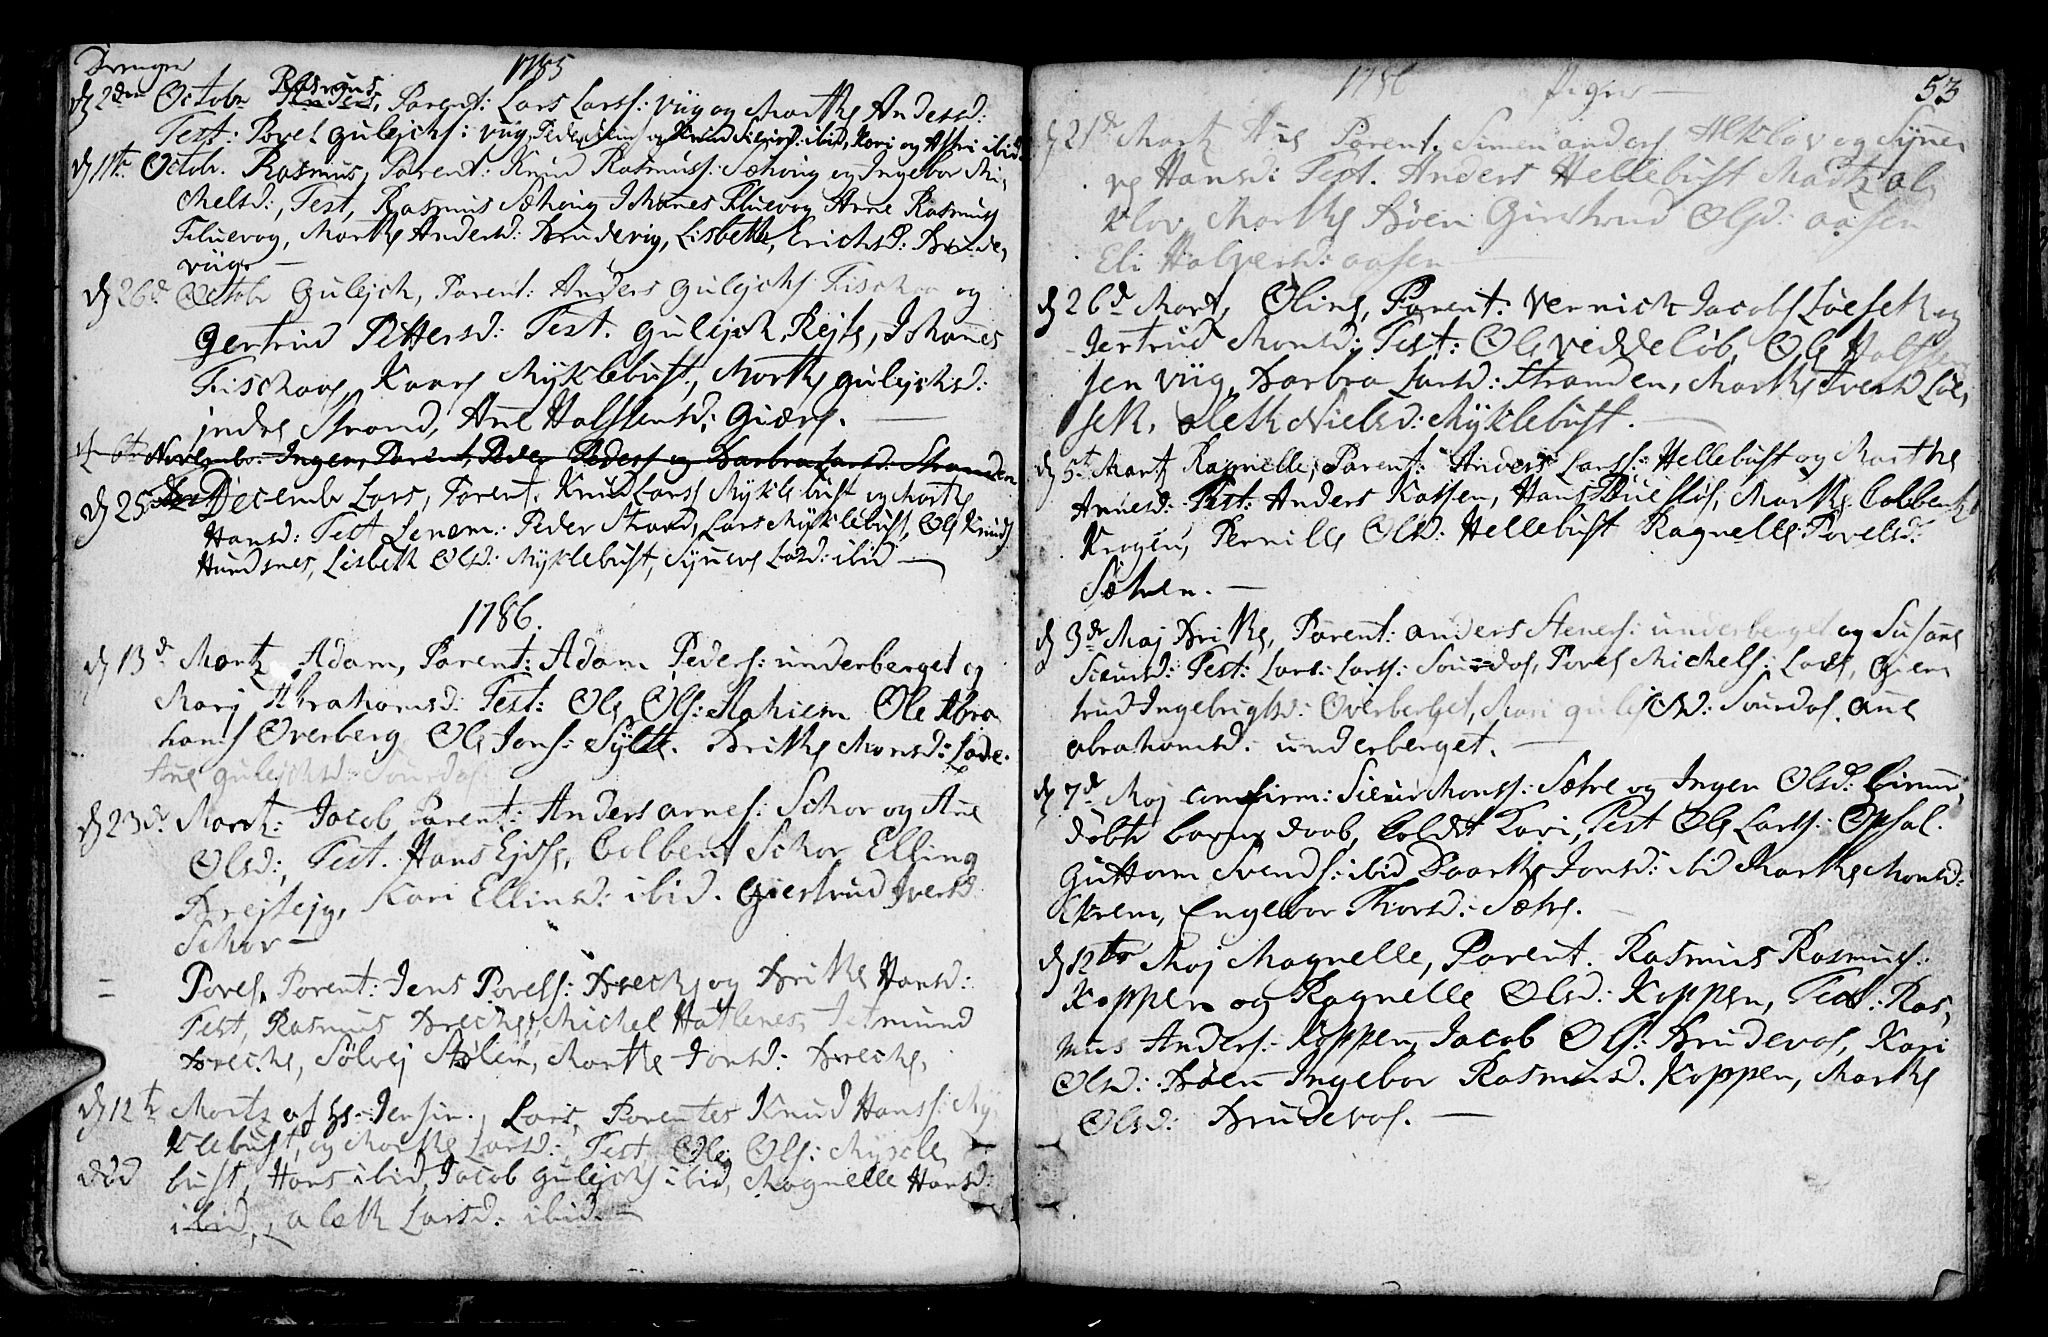 Drenger
1785
d 2den Octobr Rasmus, Parent: Lars Larss: Viig og Marthe Andersd:
Test: Povel Gulejchs: Viig, Peder ibid og Knud Siurs: ibid, Kari og Assri ibid
d 11te Octobr. Rasmus, Parent: Knud Rasmuss: Sæhoug og Ingebor Mi-
chelsd:, Test, Rasmus Sæhoug Johanes Fluevog Arne Rasmus
Fluevog, Marthe Andersd: Brudevig, Lisbeth, Erichsd: Brude,
viig —
d 26de Octobr Gulejch, Parent: Anders Gulejchs Fischaa og
Gertrud Pettersd: Test. Gulejch Rejte, Johanes
Fischaae, Kaare Myklebust, Marthe Gulejchsd:
indre Strand, Ane Halstensd: Giære. —
d 6te Novembr. Ingen, Parent, Peder Peders og Barbra Larsd: Stranden
d 25 Decembr Lars, Parent. Knud Larss Myklebust og Marthe
Hansd: Test Lenem: Peder Strand, Lars Myklebust, Ole Knuds
Hundsnes, Lisbeth Olsd: Myklebust, Synneve Larsd: ibid —
1786.
d 13d. Martz Adam, Parent: Adam Peders: underberget og
Marj Abrahamsd: Test: Ole Ols: Aahiem Ole Abra
hams Overberg Ole Jons: Sylte. Brithe Monsd: Lade.
Ane Gulejchsd: Sourdal.
d 23d. Martz: Jacob Parent: Anders Arnes: Schor og Ane
Olsd:, Test. Hans Ejds, Colbent Schor Elling
Brejtejg, Kari Ellinsd: ibid. Giertrud Iversd
Schor —
= Povel, Parent: Jens Povels: Breche og Brithe Hansd:
Test, Rasmus Breche, Michel Hatlenes, Jetmund
Breche, Sølvej Stølen, Marthe Jonsd: Breche,
d 12te Martz af Hs. Jensin. Lars, Parentes Knud Hanss: My
klebust, og Marthe Larsd:, Test Ole Ols: Mycle,
død bust, Hans ibid, Jacob Gulejchs ibid, Magnelle Hansd:
ibid, Aleth Larsd: ibid. —
1786 Piger — 53
d 21de Martz Ane Parent. Simen Anders Alkslov og Syne
ve Hansd: Test. Anders Hellebust Martz al,
klov Marthe Bøen Giertrud Olsd: Aasen
Eli Halversd: Aasen —
d 26d Mart, Oline, Parent: Vernich Jacobs Løeseth og
Jertrud Monsd: Test: Ole Veddeløb, Ole Halste
sen Viig, Barbra Larsd: Stranden, Marthe Iversd Løe,
seth, Aleth Nielsd: Myklebust. —
d 5te Martz Ragnelle, Parent: Anders Larss: Hellebust og Marthe
Arnesd: Test: Anders Kaasen, Hans, Marthe Colbents
Krogen, Pernille Olsd: Hellebust Ragnelle Povelsd:
Sætren. —
d 3de Maj Brithe, Parent: Anders Steners: underberget og Susane
Siursd: Test: Lars: Larss: Sourdal, Povel Michels: Lade, Gier
trud Ingebrigtsd: Overberget, Mari Gulejchsd: Sourdal, Ane
Abrahamsd. underberget. —
d 7de Maj confirm: Siur Monss: Sætre og Ingen Olsd:
døbte barns daab, Coldt Kari, Test Ole Larss: Opsal.
Guttorm Svends: ibid Baarthe Jonsd: ibid Marthe Monsd:
Ekrem, Engebor Thorsd: Sætre. —
d 12te Maj Magnelle, Parent. Rasmus Rasmus:
Koppen og Ragnelle Olsd: Koppen, Test: Ras,
mus Anders: Koppen, Jacob Ols: Brudevol, Kari
Olsd: Bøen Ingebor Rasmusd. Koppen, Marthe
Olsd: Brudevol. —